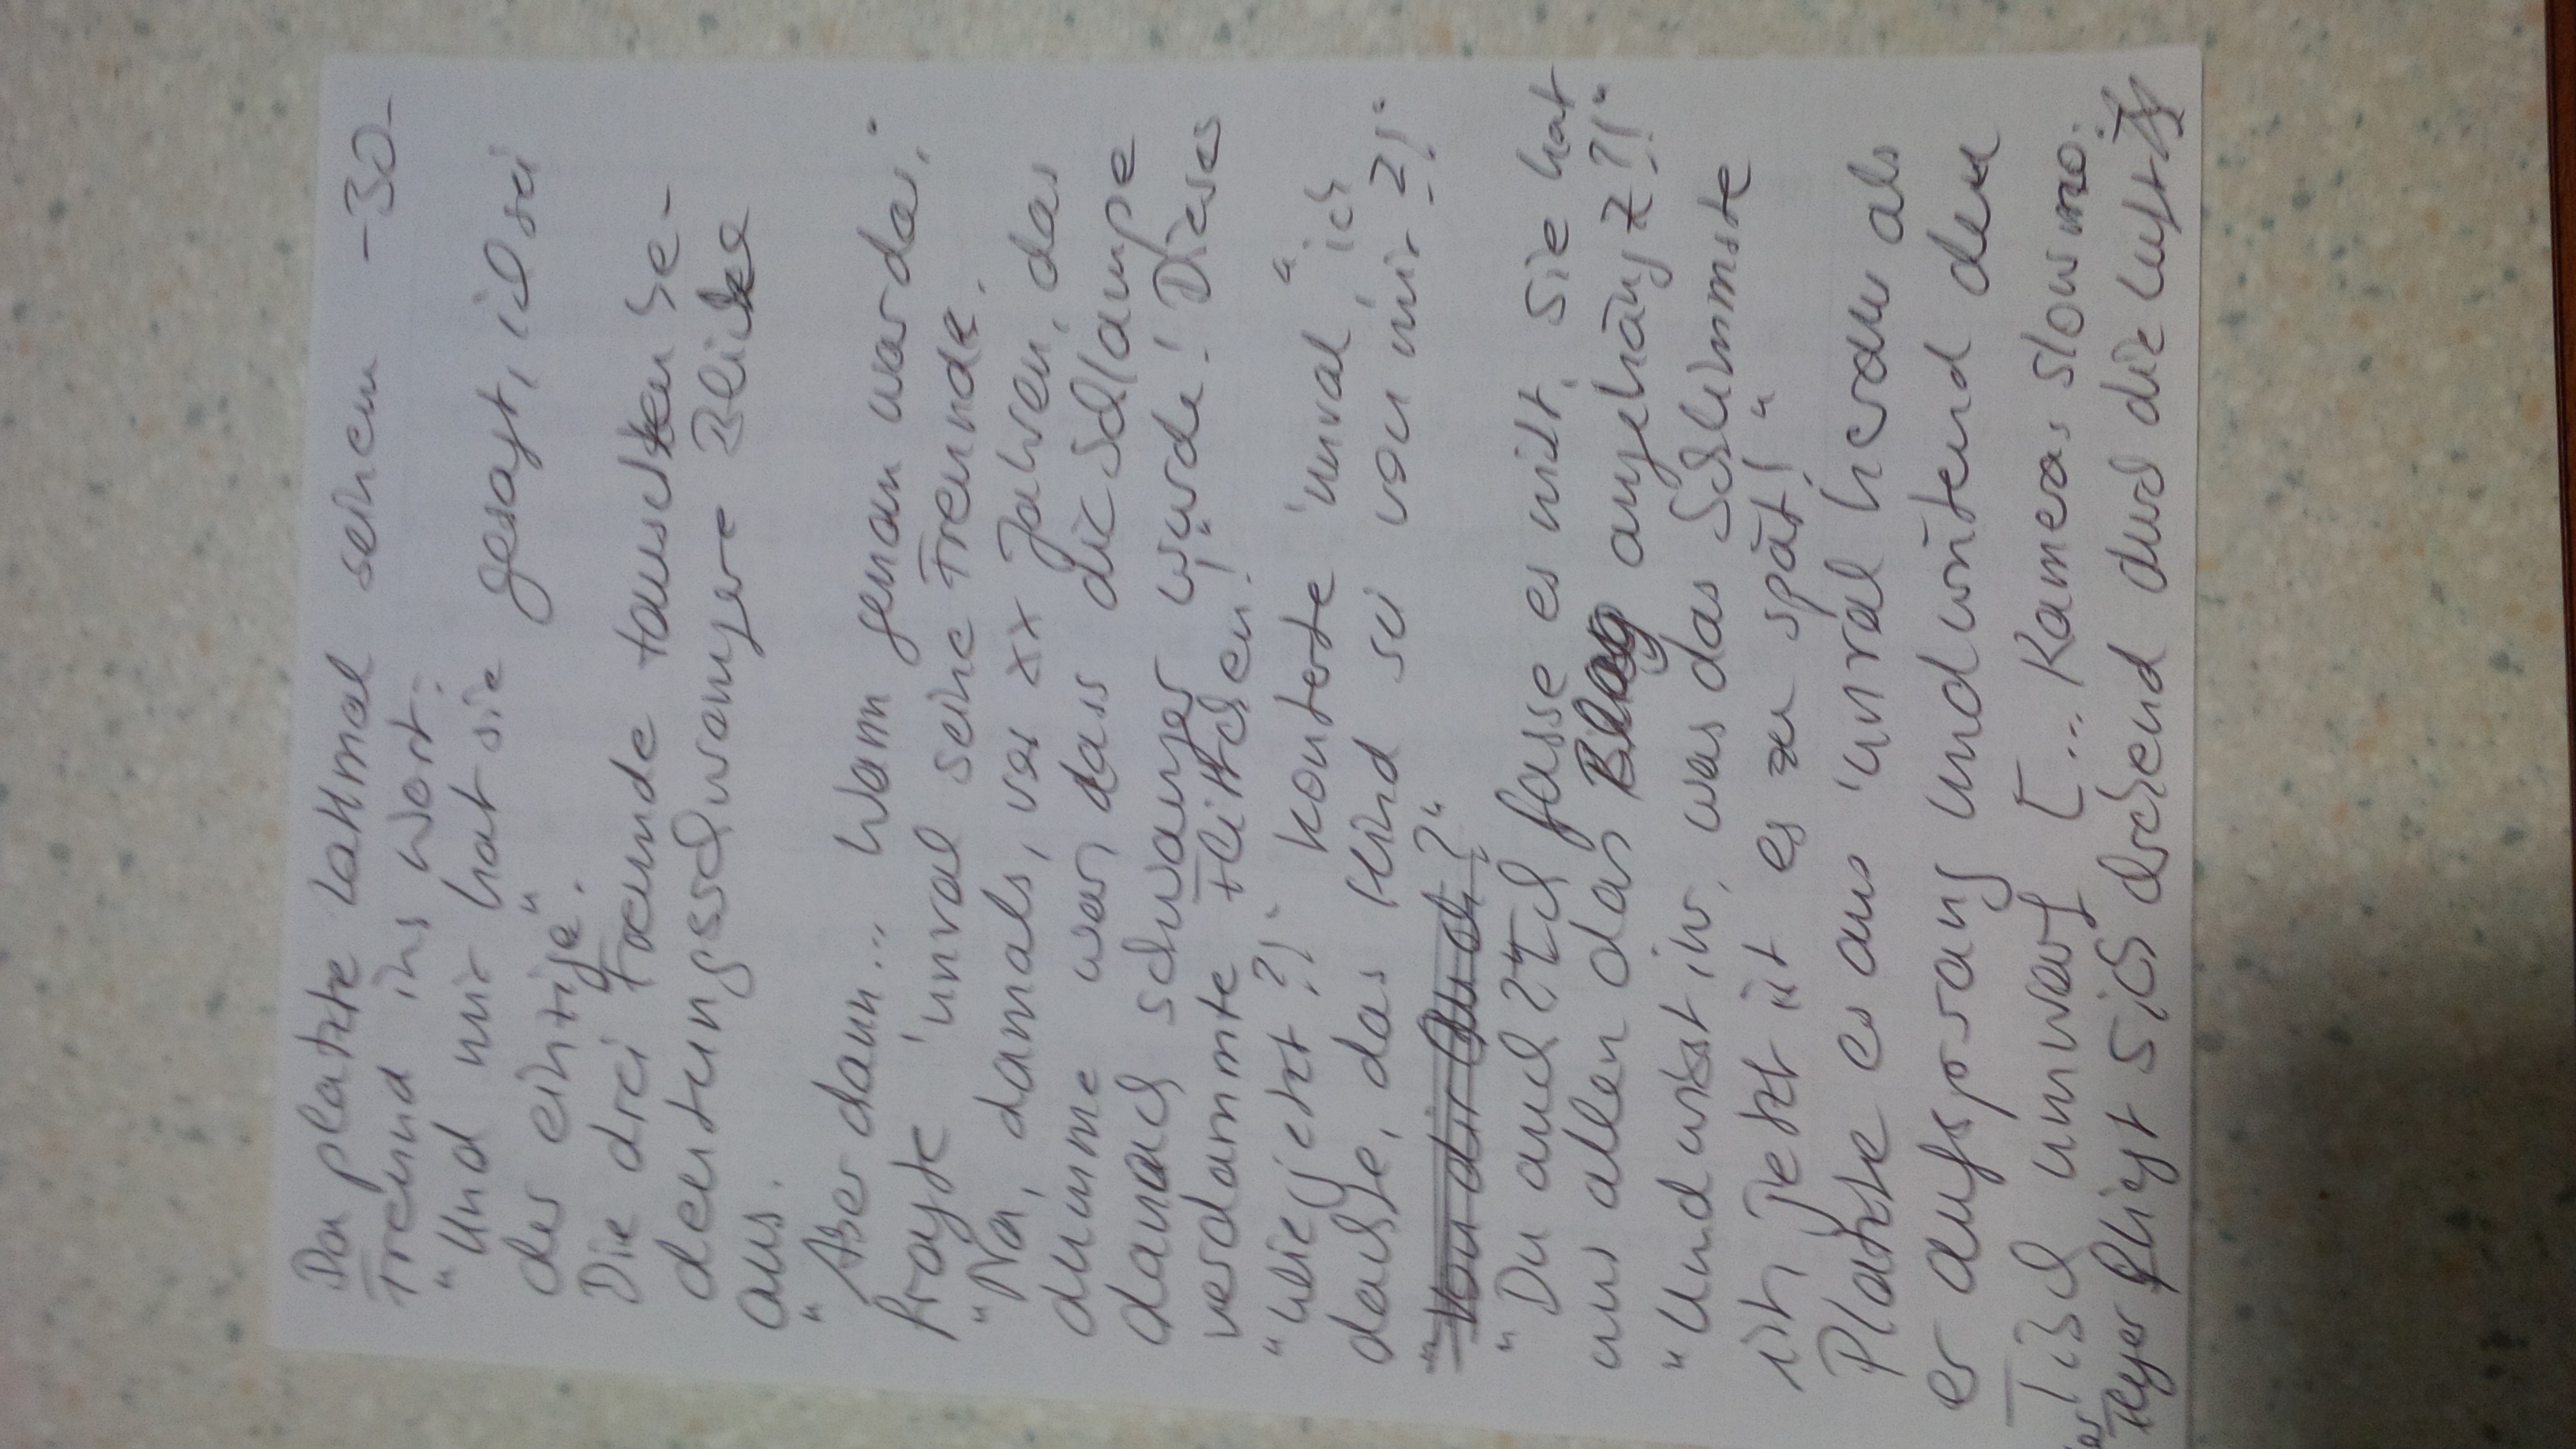 Da platzte Lattmal seinem -30-
Freund ins Wort:
"Und mir hat sie gesagt, ich sei
der einzige".
Die drei Freunde tauschten be-
deutungsschwangere Blicke
aus.
"Aber dann... Wann genau war das,"
fragte 'unral seine Freunde.
"Na, damals, vor xx Jahren, das
dumme war, dass die Schlampe
danach schwanger wurde! Dieses
verdammte Flittchen!"
"Wie jetzt?!" konterte 'unral "ich
dachte, das Kind sei von mir?!"
"Von dir auch?"
"Du auch??? Ich fasse es nicht, sie hat
uns allen das Blag angehängt?!"
"Und wisst ihr, was das Schlimmste
ist, jetzt ist es zu spät!"
Platzte es aus 'unral heraus als
er aufsprang und wütend den
Tisch umwarf [... Kamera: slowmo:
fliegt sich drehend durch die Luft